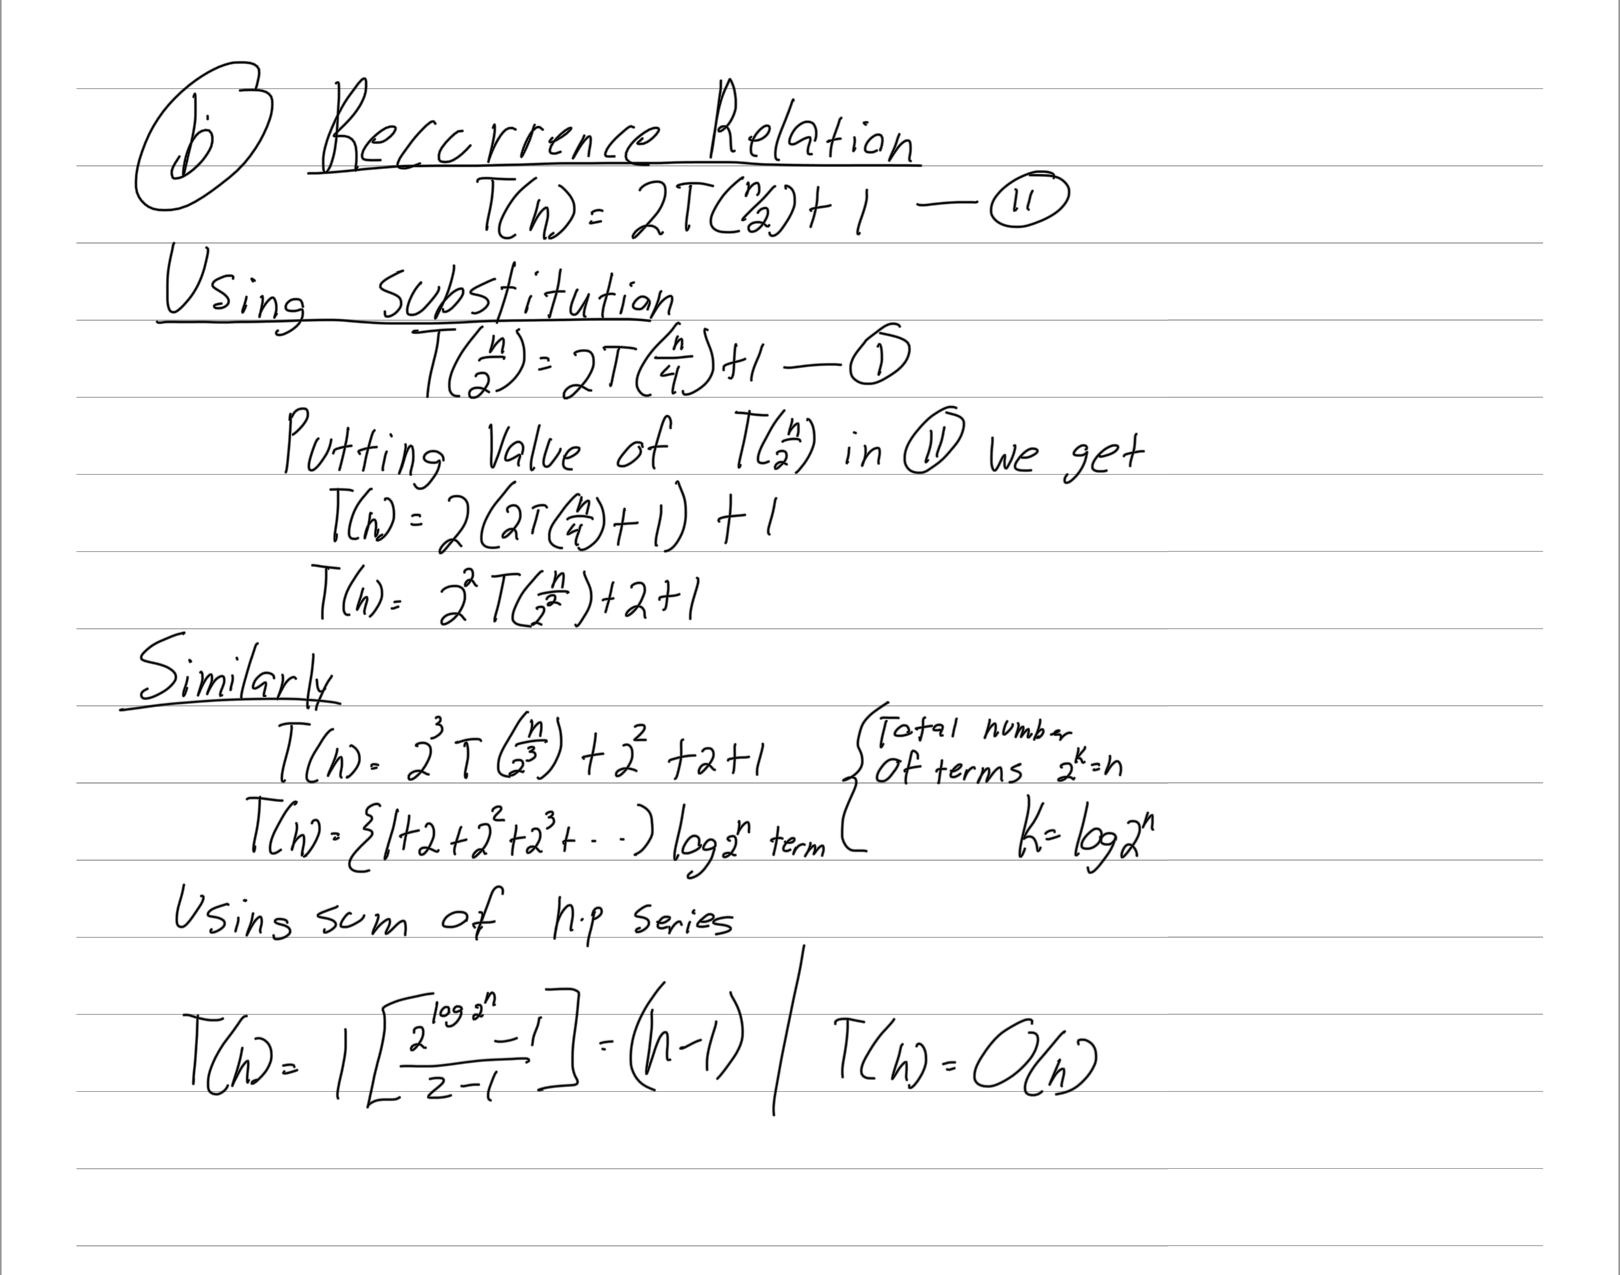 b Reccrrence Relation
T(n) = 2T(n/2) + 1 — (11)
Using substitution
T(n/2) = 2T(n/4) + 1 — (1)
Putting Value of T(n/2) in (11) we get
T(n) = 2(2T(n/4) + 1) + 1
T(n) = 2² T(n/2²) + 2 + 1
Similarly
T(n) = 2³ T(n/2³) + 2² + 2 + 1
{ Total number
Of terms 2^k = n
K = log2^n
T(n) = {1 + 2 + 2² + 2³ + ...) log2^n term
Using sum of h.p series
T(n) = 1 [ (2^(log2^n) - 1) / (2 - 1) ] = (n-1) | T(n) = O(n)